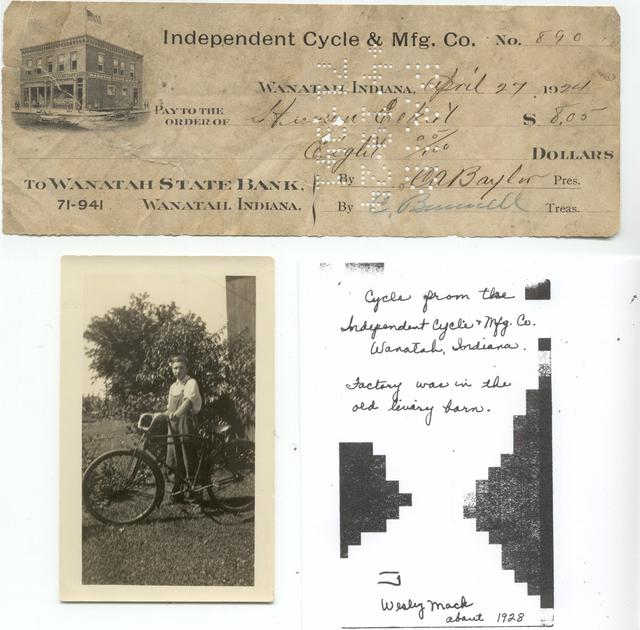 Independent Cycle & Mfg. Co. No. 890
Wanatah, Indiana, April 27, 1924
Pay to the
order of $ 8.05
Eight Dollars
To Wanatah State Bank,
71-941 Wanatah, Indiana.
By C A Baylor Pres.
By C. Bunnell Treas.
Cycle from the
Independent Cycle & Mfg. Co.
Wanatah, Indiana.
Factory was in the
old livery barn.
Wesly Mack
about 1928